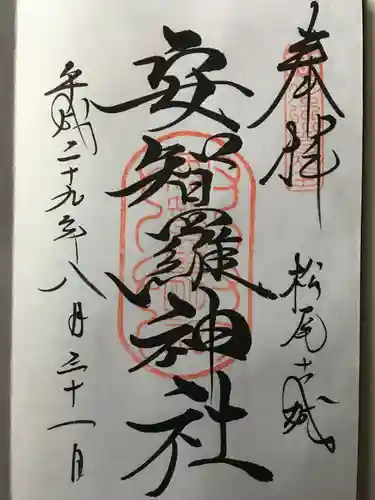 奉拝
松尾古城
安智羅神社
平成二十九年八月三十一日